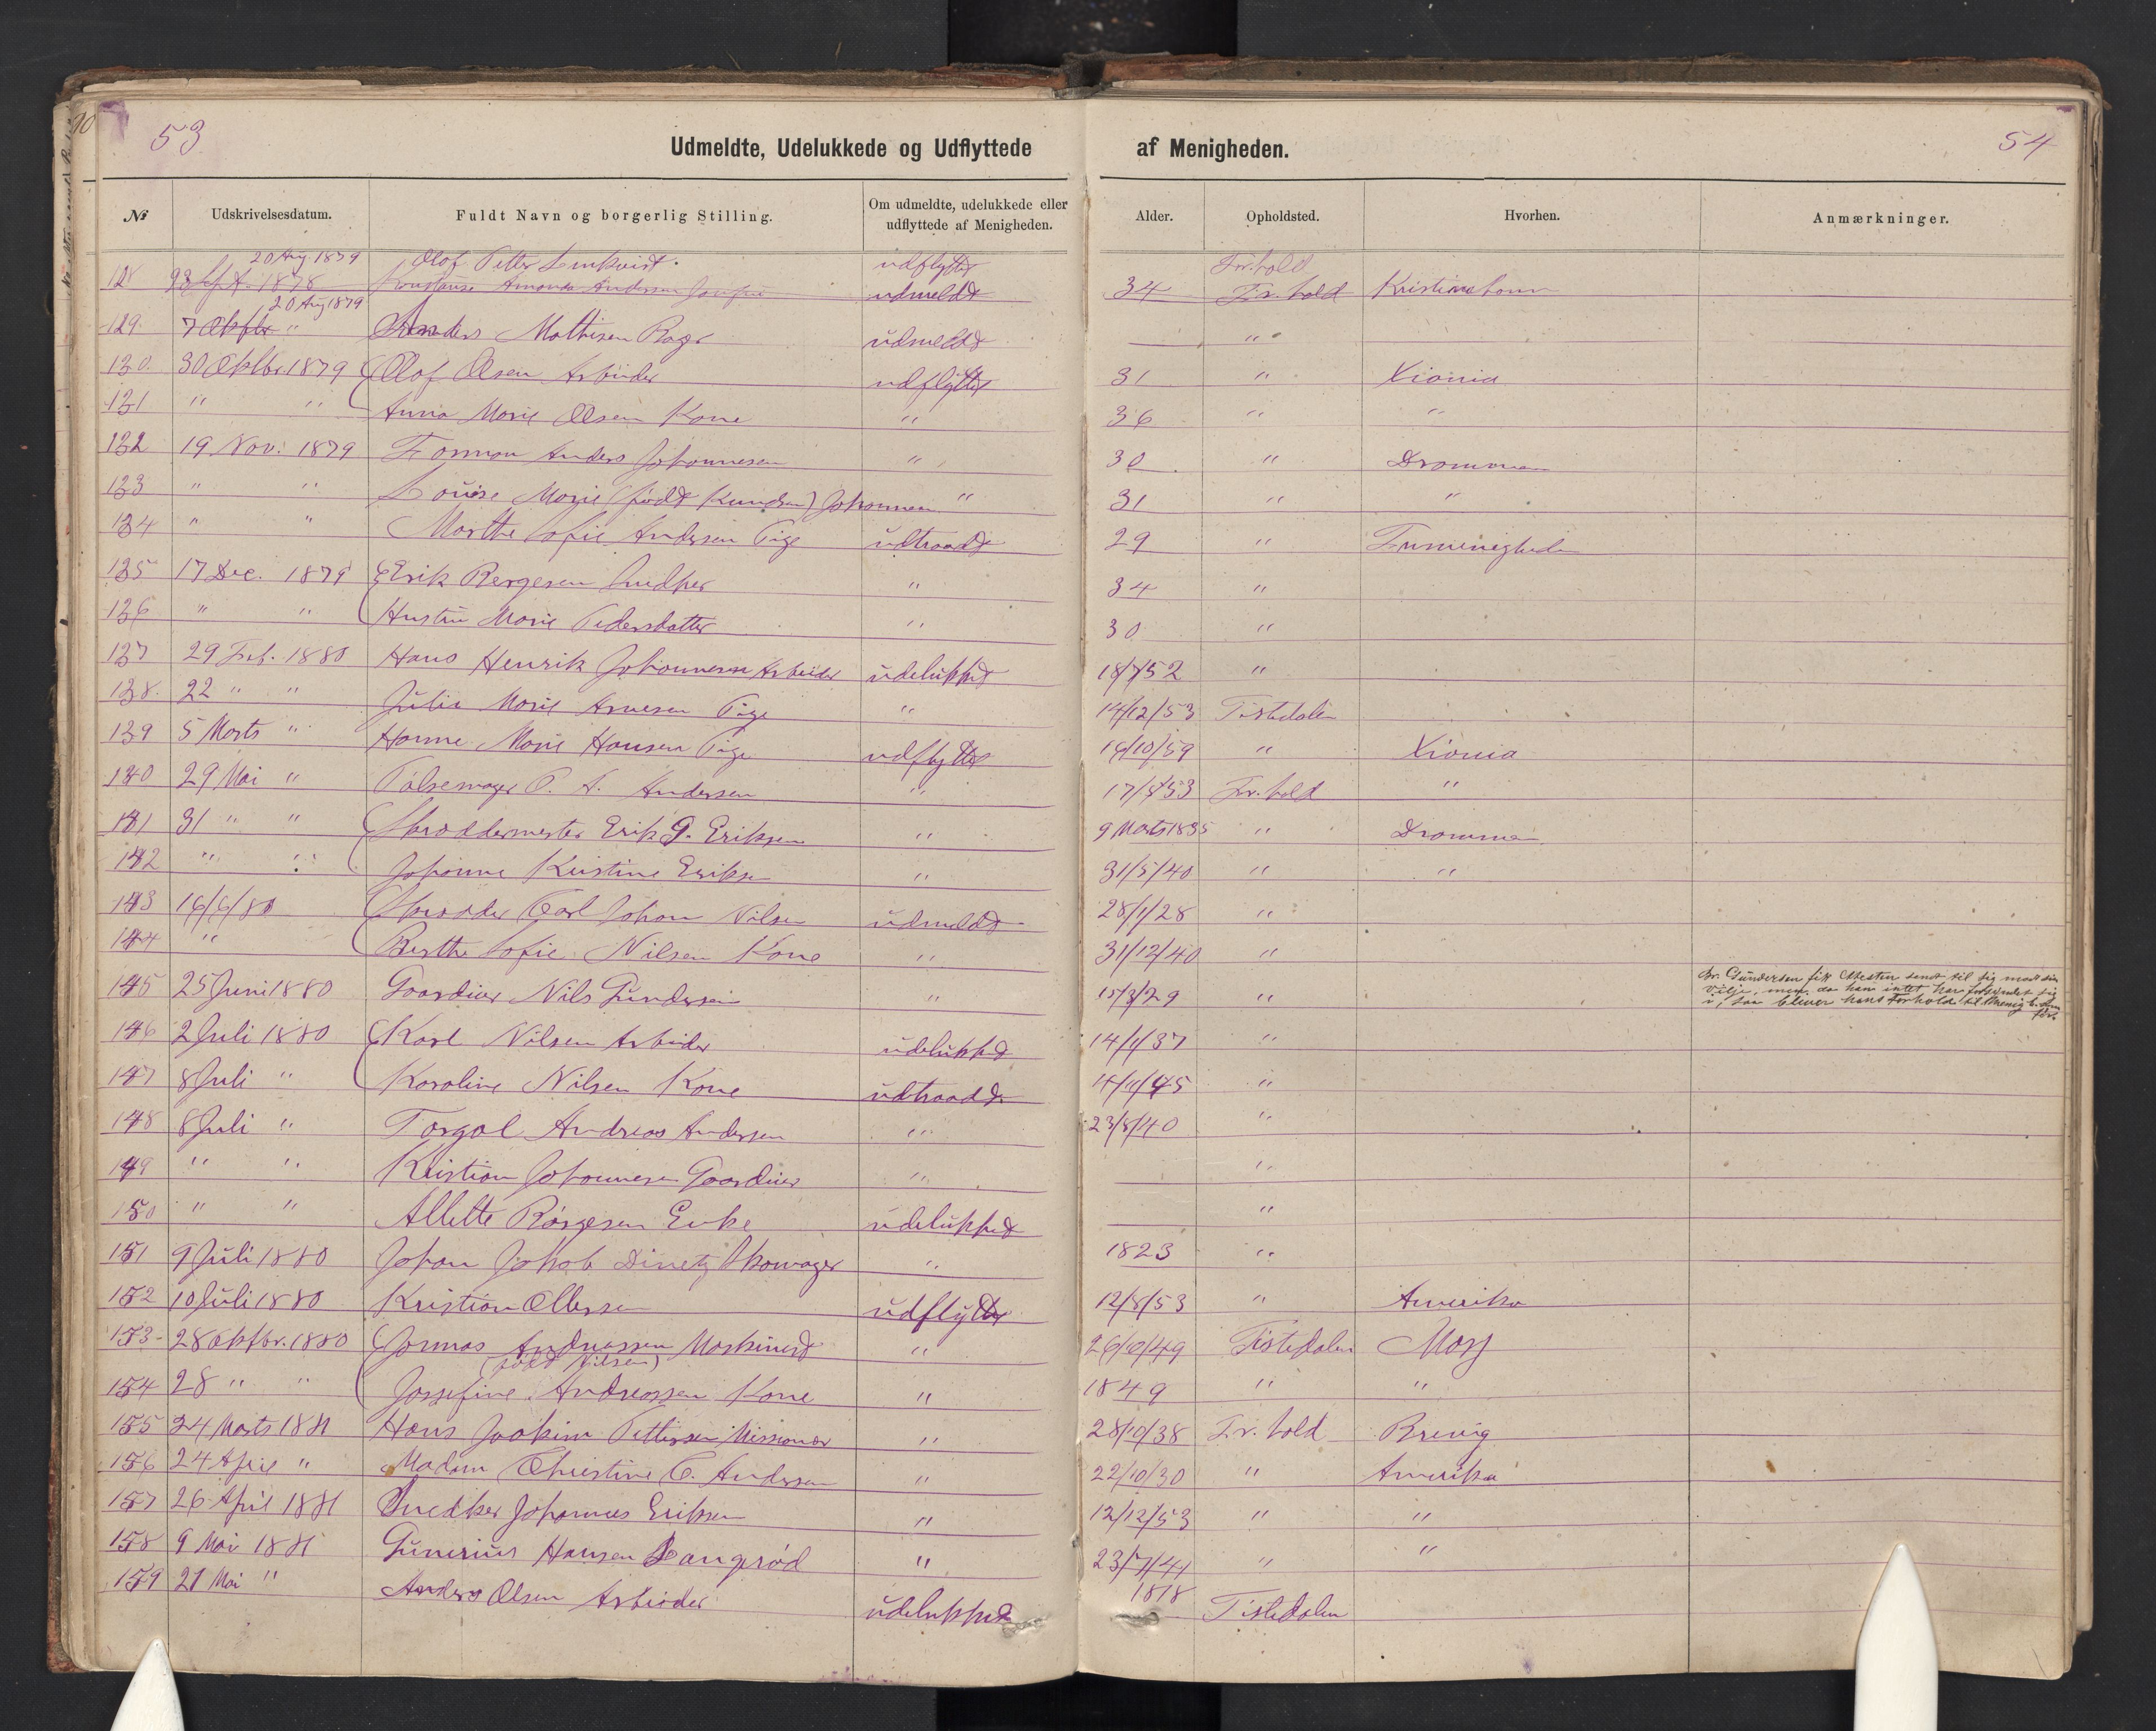 53
Udmeldte, Udelukkede og Udflyttede af Menigheden.
54
№ Udskrivelsesdatum. Fuldt Navn og borgerlig Stilling. Om udmeldte, udelukkede eller udflyttede af Menigheden. Alder. Opholdsted. Hvorhen. Anmærkninger.
20 Aug 1879 Olof Petter udflyttet Fr.hald
128 Sept. 1878 Amanda Andersen udmeldt 34 Fr. hald
20 Aug 1879
129 7 Oktbr " Anders Mathisen udmeldt "
130. 30 Oktbr. 1879 Olof Olsen Arbeider udflyttet 31 " Xiania
131 " " Anna Marie Olsen Kone " 36 " "
132 19 Nov. 1879 Forman Anders Johannesen " 30 " Drammen
133 " " Louise Marie (født Knudsen) Johannesen " 31 " "
134 " " Marthe Sofie Andersen Pige udtraadt 29 " Frimenigheden
135 17 Dec. 1879 Erik Børgesen Snedker " 34 "
136 " " Hustru Marie Pedersdatter " 30 "
137 29 Feb. 1880 Hans Henrik Johannesen Arbeider udelukket 18/7/52 "
138. 22 " " Julia Marie Arnesen Pige " 14/12/53 Tistedalen
139 5 Marts " Hanne Marie Hansen Pige udflyttet 16/10/59 " Xiania
140 29 Mai " Pølsemager P. A. Andersen " 17/5/53 Fr. hald "
141 31 " " Skræddermester Erik G. Eriksen " 9 Marts 1835 " Drammen
142 " " Johanne Kristine Eriksen " 31/5/40 " "
143 16/6/80 Skrædder Carl Johan Nilsen udmeldt 28/1/28 "
144 " Berthe Sofie Nilsen Kone " 31/12/40 "
145 25 Juni 1880 Gaardeier Nils Gundersen " 15/3/29 " Br. Gundersen fik Attesten sendt til sig mod sin
Vilje, men da han intet har forsyndet sig
i, saa bliver hans Forhold til Menigh. som
før.
146 2 Juli 1880 Karl Nilsen Arbeider udelukket 14/1/37 "
147 8 Juli " Karoline Nilsen Kone udtraadt 14/11/45 "
148 8 Juli " Torgal Andreas Andersen " 23/8/40 "
149 " " Kristian Johannesen Gaardeier " "
150 " " Allette Børgesen Enke udelukket "
151 9 Juli 1880 Johan Jakob Dinetz Skomager " 1823 "
152 10 Juli 1880 Kristian Ellersen udflyttet 12/8/53 " Amerika
153 28 Oktbr. 1880 Jonnas Andreassen Maskinist " 26/10/49 Tistedalen Moss
(født Nilsen)
154 28 " " Jossefine Andreassen Kone " 1849 " "
155 24 Marts 1881 Hans Joakim Pettersen Missionær " 28/10/38 Fr. hald Brevig
156 24 April " Madam Christine C. Andersen " 22/10/30 " Amerika
157 26 April 1881 Snedker Johannes Eriksen " 12/12/53 " "
158 9 Mai 1881 Gunerius Hansen Langrød " 23/7/41 " "
159 21 Mai " Anders Olsen Arbeider udelukket 1818 Tistedalen